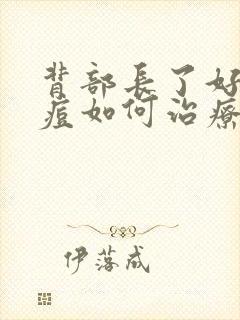 背部長了好
痘如何治療
伊落成